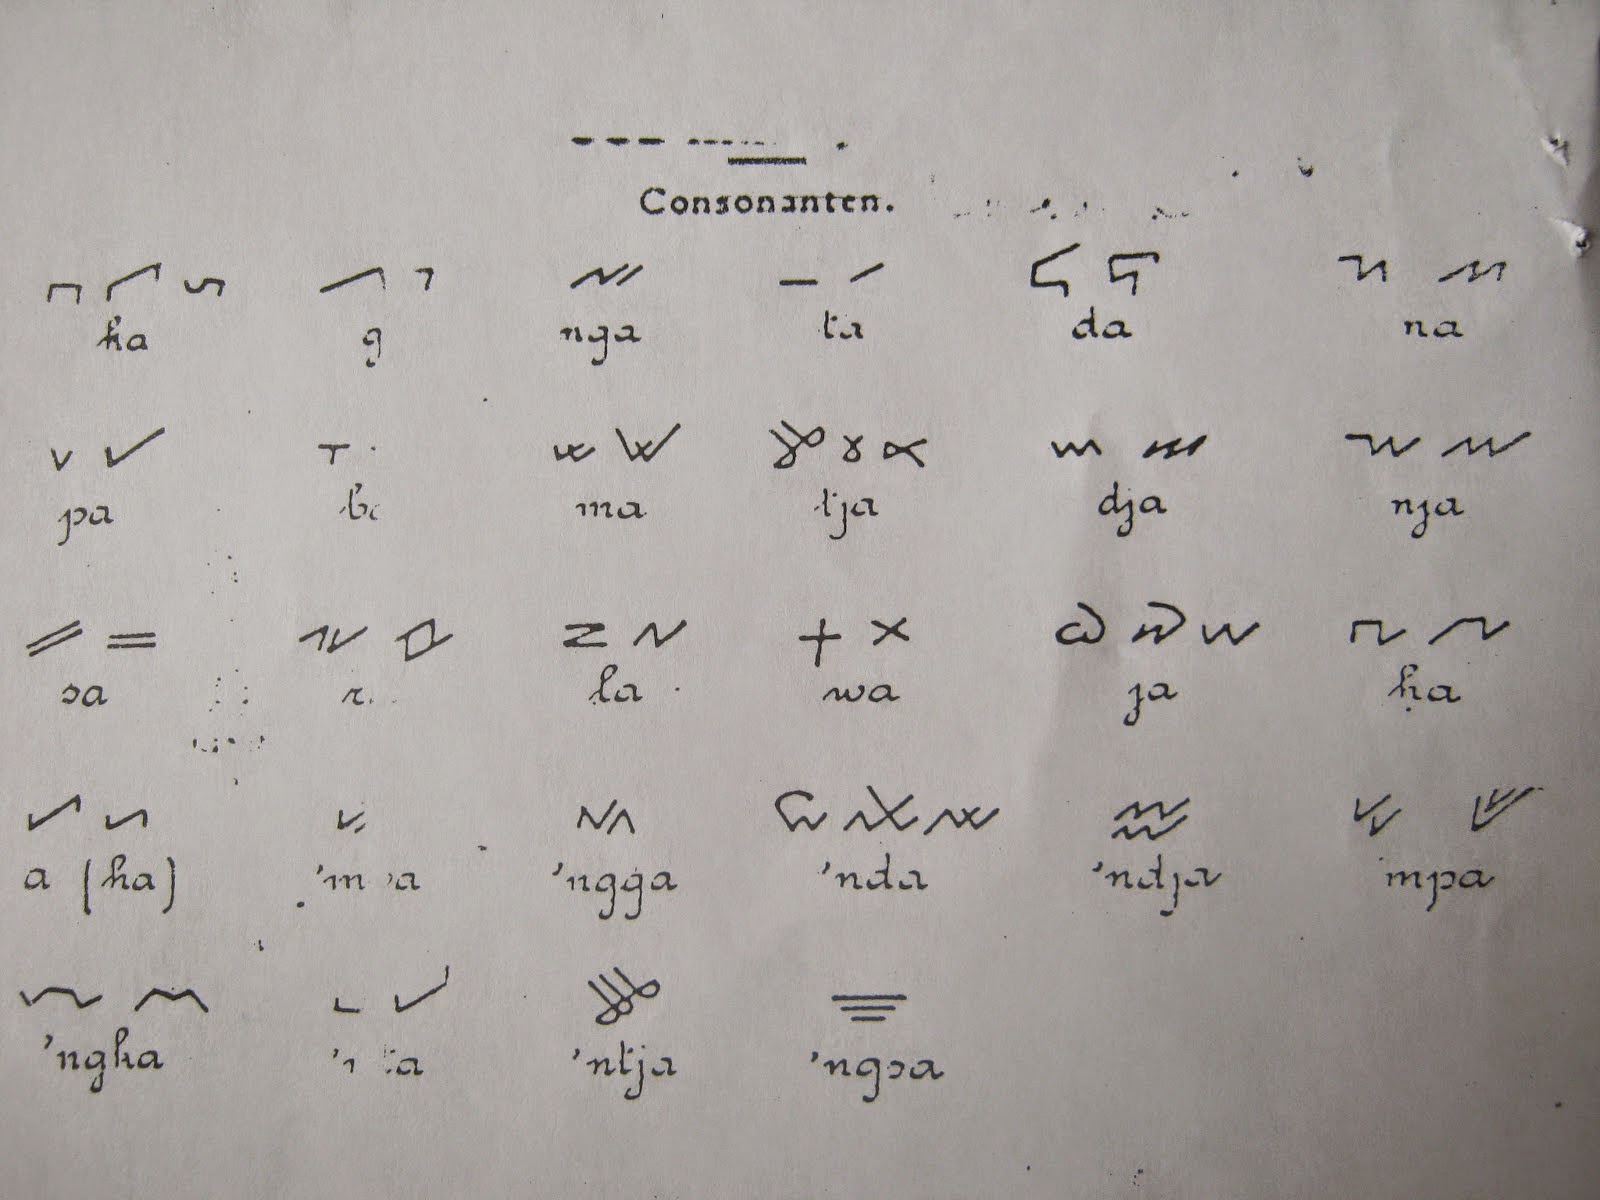 Consonanten.
ka g nga ta da na
pa ma tja dja nja
sa la wa ja ḥa
a (ha) 'ngga 'nda 'ndja 'mpa
'ngka 'ntja 'ngsa